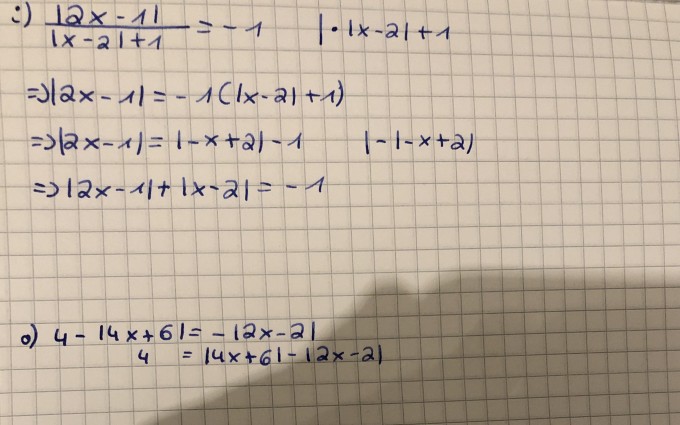 i) |2x-1| / |x-2|+1 = -1 | · |x-2|+1
=> |2x-1| = -1(|x-2|+1)
=> |2x-1| = |-x+2|-1 |-|-x+2|
=> |2x-1|+|x-2| = -1
o) 4-|4x+6| = -|2x-2|
4 = |4x+6|-|2x-2|